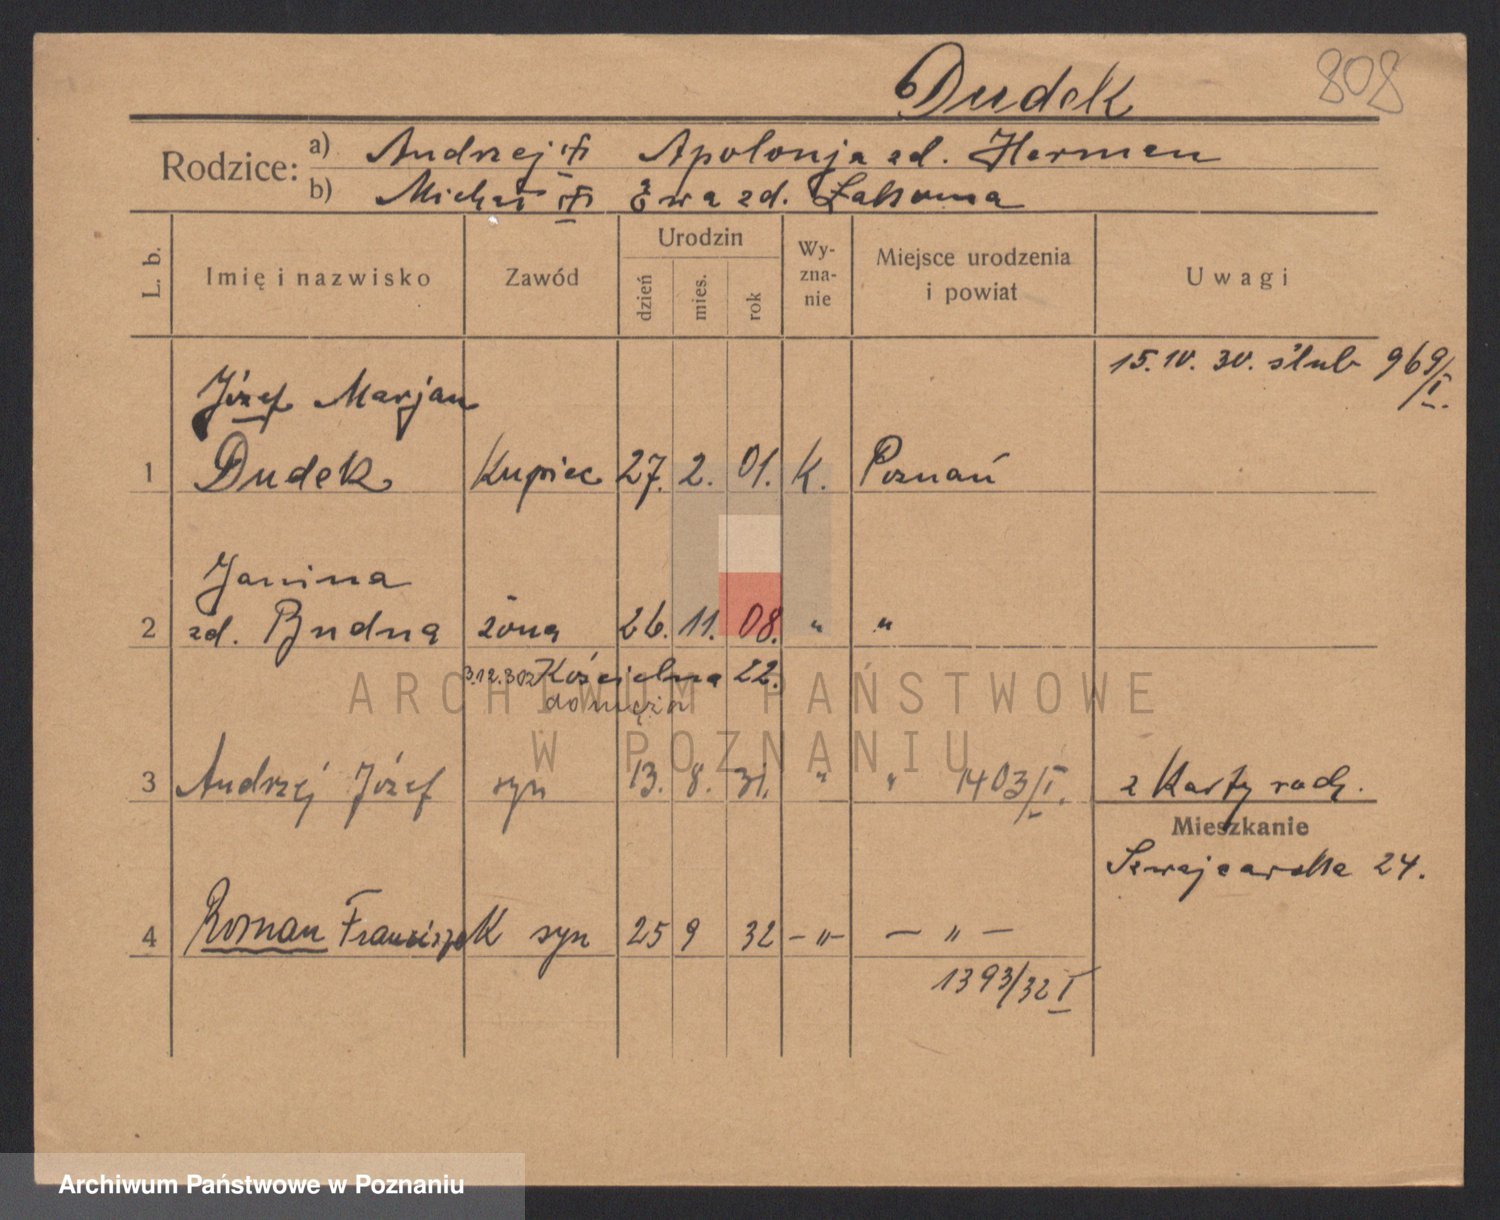 Dudek 808
Rodzice: a) Andrzej Apolonja zd. Herman
b) Michał Ewa zd.
L. b. Imię i nazwisko Zawód Urodzin dzień mies. rok Wyznanie Miejsce urodzenia i powiat Uwagi
15. IV. 30. ślub 969/I.
Józef Marjan
1 Dudek Kupiec 27. 2. 01. K. Poznań
Janina
2 zd. Budna żona 26. 11. 08. " "
3.12.30 Kościelna 22.
do męża
ARCHIWUM PAŃSTWOWE
W POZNANIU
3 Andrzej Józef syn 13. 8. 31. " " 1403/I. z Karty rodz.
Mieszkanie
Szwajcarska 24.
4 Roman Franciszek syn 25 9 32 – " – – " –
1393/32 I
Archiwum Państwowe w Poznaniu